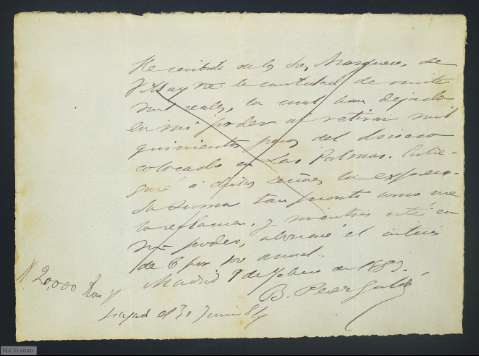 He recibido de los Sres Marqueses de
la cantidad de veinte
mil reales, la cual han dejado
en mi poder al retirar mil
quinientos pesos del dinero
colocado en Las Palmas. Entre-
garé á dichos señores la expresa-
da suma tan pronto como me
la reclamen, y mientras esté en
mi poder, abonaré el interés
de 6 por 100 anual.
Madrid de Febrero de 1883.
B. Perez Galdós
20,000
30 Junio 84